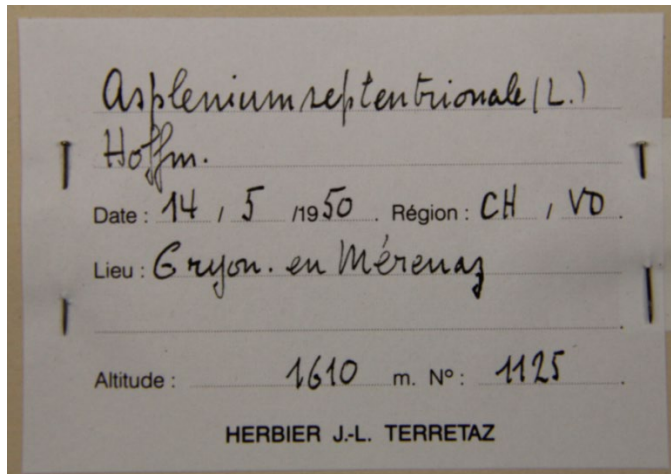 Asplenium septentrionale (L.)
Hoffm.
Date : 14 / 5 /1950 . Région : CH , VD .
Lieu : Gryon. en Mérenaz
Altitude : 1610 m. Nº : 1125 .
HERBIER J.-L. TERRETAZ